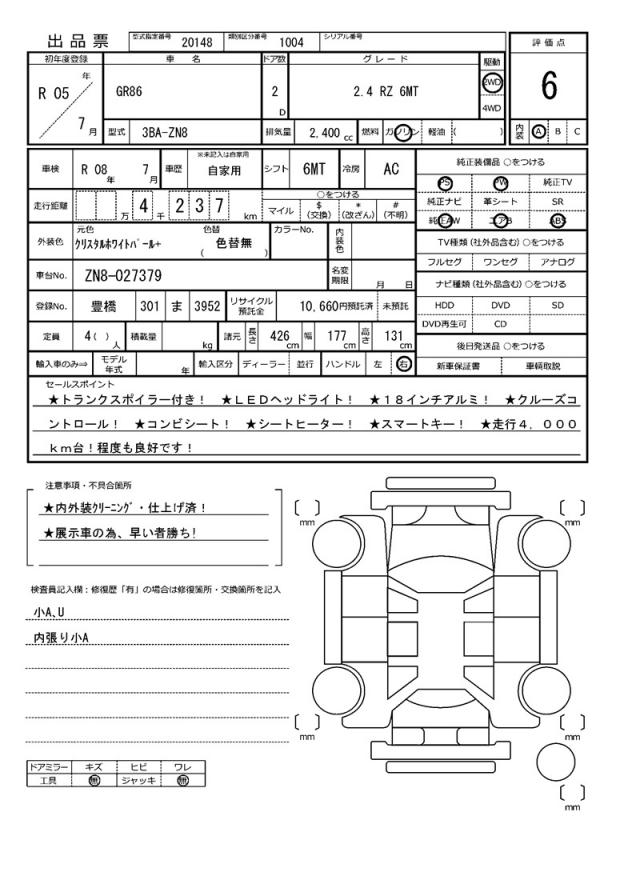 出品票 型式指定番号 20148 類別区分番号 1004 シリアル番号
評価点
6
内装 A B C
初年度登録 車名 ドア数 グレード 駆動
R 05 年 7 月 GR86 2 D 2.4 RZ 6MT 2WD 4WD
型式 3BA-ZN8 排気量 2,400 cc 燃料 ガソリン 軽油 ( )
車検 R 08 年 7 月 車歴 ※未記入は自家用 自家用 シフト 6MT 冷房 AC
走行距離 万 4 千 2 3 7 km ○をつける
マイル $ (交換) * (改ざん) # (不明)
外装色 元色 クリスタルホワイトパール+ 色替 ( 色替無 ) カラーNo. 内装色
車台No. ZN8-027379 名変期限 月 日
登録No. 豊橋 301 ま 3952 リサイクル預託金 10,660円預託済 未預託
定員 4( ) 人 積載量 kg 諸元 長さ 426 cm 幅 177 cm 高さ 131 cm
輸入車のみ⇒ モデル年式 年 輸入区分 ディーラー 並行 ハンドル 左 右
純正装備品 ○をつける
PS PW 純正TV
純正ナビ 革シート SR
純正AW エアB ABS
TV種類 (社外品含む) ○をつける
フルセグ ワンセグ アナログ
ナビ種類 (社外品含む) ○をつける
HDD DVD SD
DVD再生可 CD
後日発送品 ○をつける
新車保証書 車輌取説
セールスポイント
★トランクスポイラー付き! ★LEDヘッドライト! ★18インチアルミ! ★クルーズコ
ントロール! ★コンビシート! ★シートヒーター! ★スマートキー! ★走行4,000
km台!程度も良好です!
注意事項・不具合箇所
★内外装クリーニング・仕上げ済!
★展示車の為、早い者勝ち!
検査員記入欄:修復歴「有」の場合は修復箇所・交換箇所を記入
小A,U
内張り小A
ドアミラー キズ ヒビ ワレ
工具 無 ジャッキ 無
mm
mm
mm
mm
mm